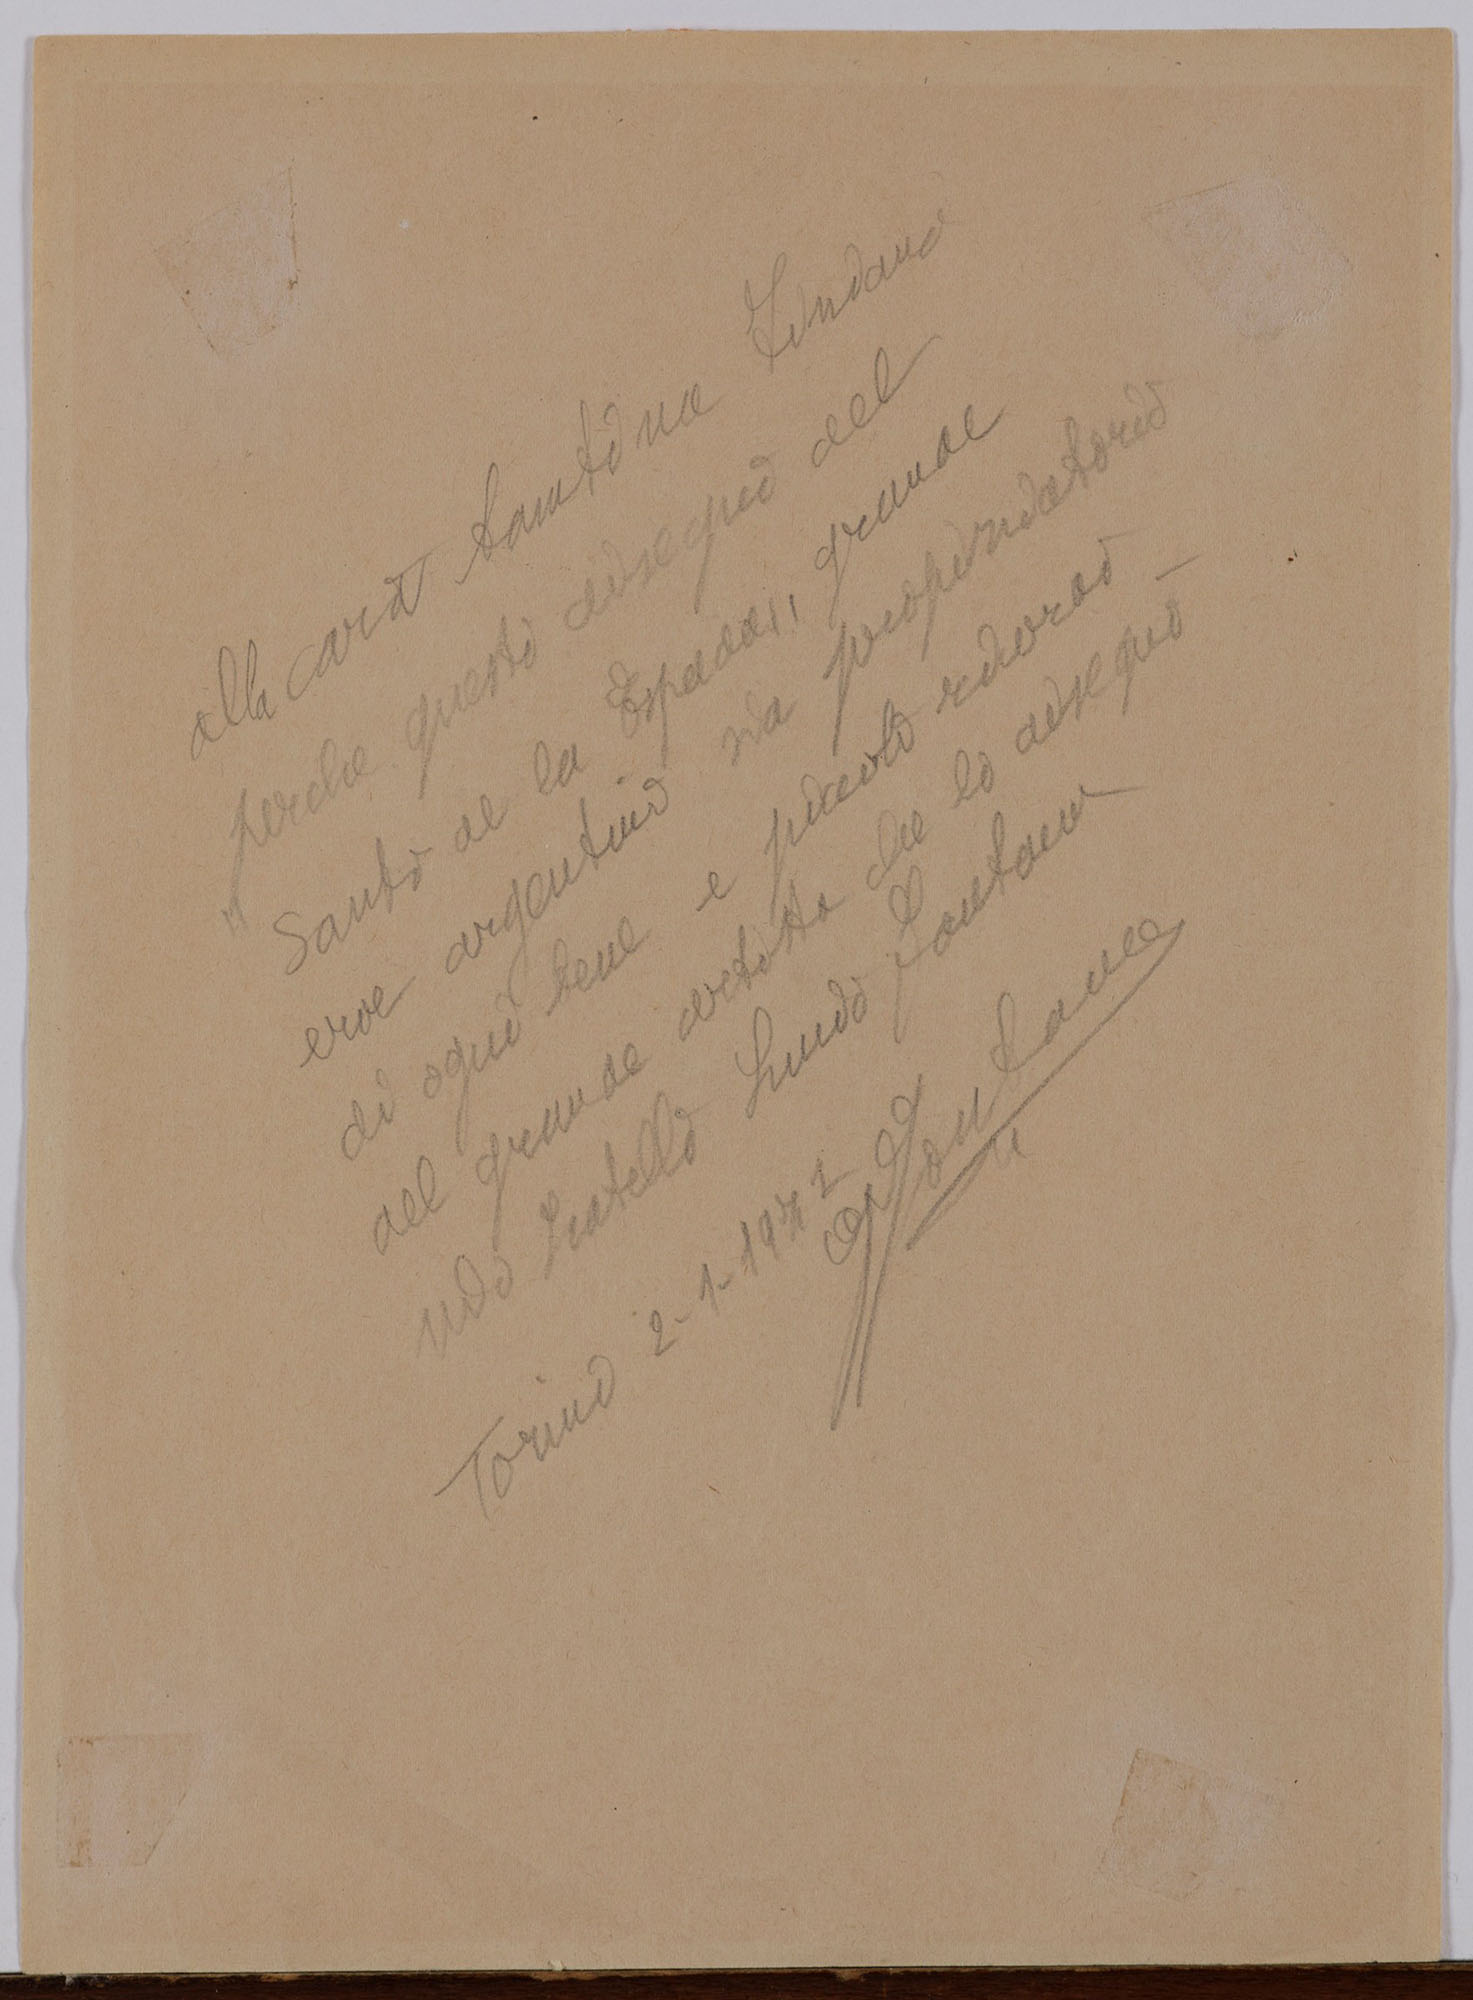 alla cara Santina Zindano
perche questo disegno del
"Santo de la Espada", grande
eroe argentino sia propiziatorio
di ogni bene e piccolo ricordo
del grande artista che lo disegnò
mio fratello Lucio Fontana
Torino 2-1-1971
Fontana